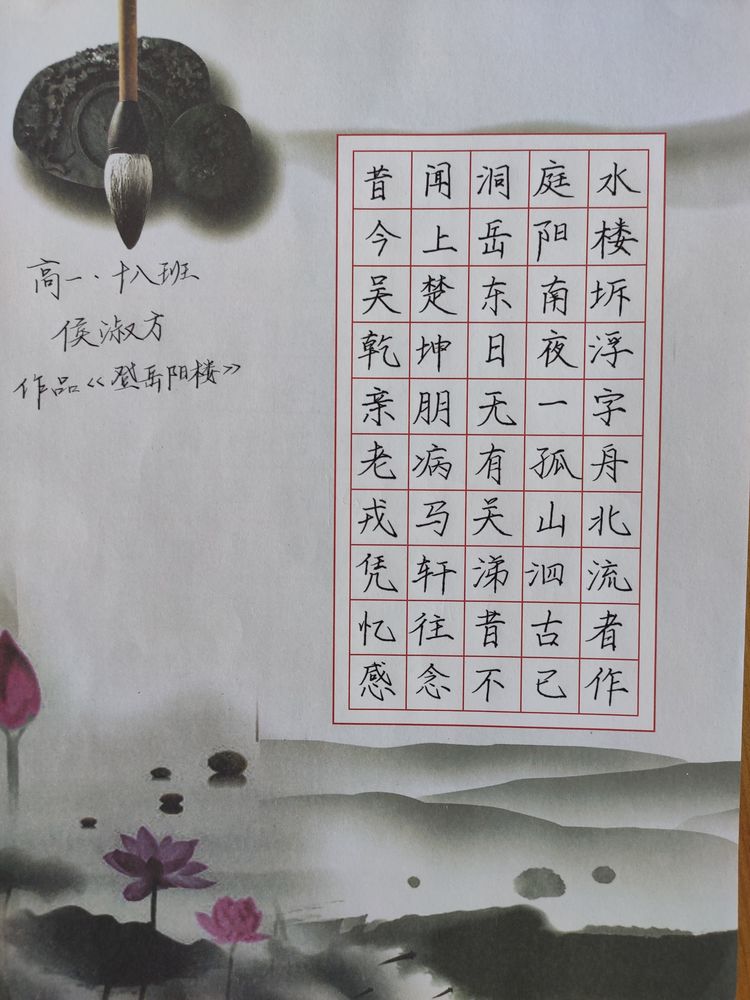 昔闻洞庭水
今上岳阳楼
吴楚东南坼
乾坤日夜浮
亲朋无一字
老病有孤舟
戎马关山北
凭轩涕泗流
忆往昔古者
感念不已作
高一·十八班
侯淑方
作品《登岳阳楼》